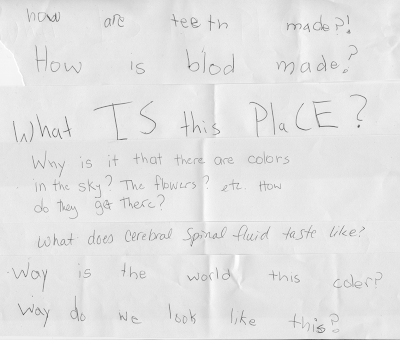 how are teeth made?!
How is blod made?
What IS this PlaCE?
Why is it that there are colors
in the sky? The flowers? etc. How
do they get There?
What does Cerebral Spinal fluid taste like?
Way is the world this coler?
Way do we look like this?